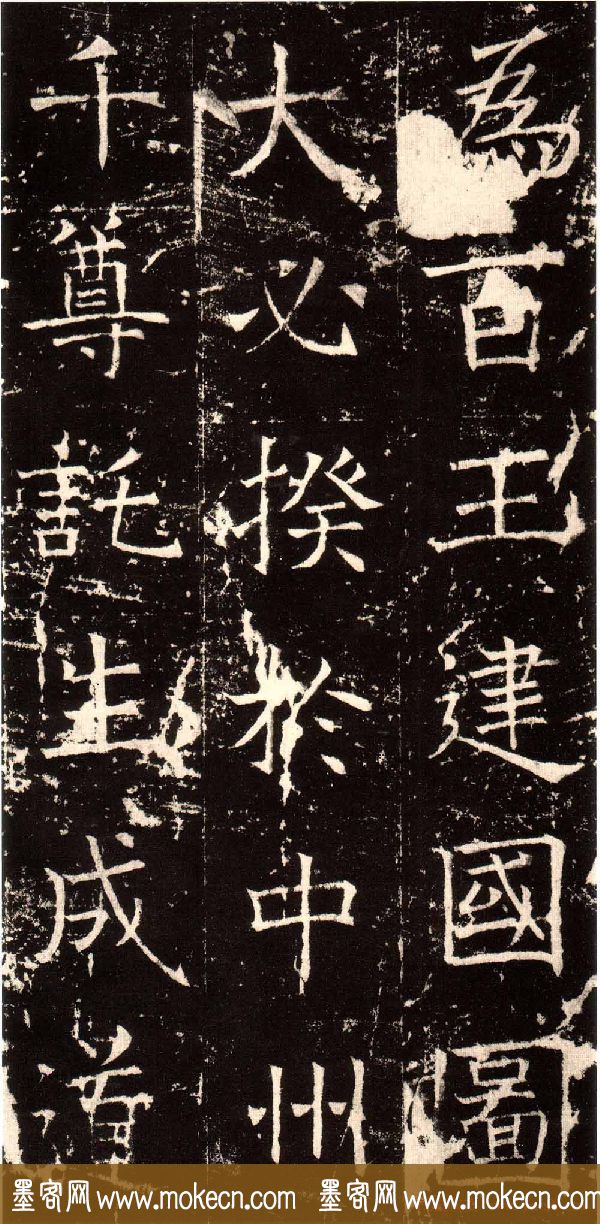 為百王建國圖
大必揆於中州
千尊託生成道
墨客网 www.mokecn.com 墨客网 www.mokecn.com